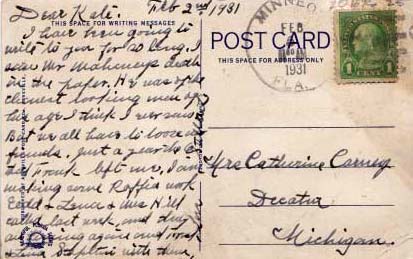 Feb 2nd/1931
Dear Kate.
THIS SPACE FOR WRITING MESSAGES
I have been going to
write to you for so long. I
seen Mr Mahoneys death
in the paper. He was of the
looking men of
his age I think I ever saw
But we all have to loose our
friends. Just a year Oct
Frank left me. I am
making some Raffia work
& Lena & Mrs Hill
called last week, and they
are coming again and
with them,
POST CARD
THIS SPACE FOR ADDRESS ONLY
MINNEO
FEB
1931
FLA.
1 CENT 1
Mrs Catherine Carney
Decatur
Michigan.